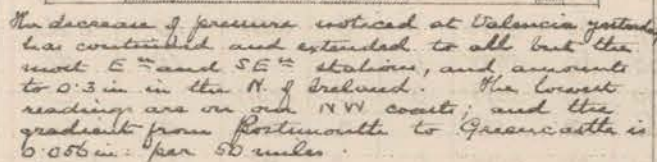 The decrease of pressure noticed at Valencia yesterday
has continued and extended to all but the
most Eⁿ and SEⁿ stations, and amounts
to 0.3 in in the N. of Ireland. The lowest
readings are on our NW coasts; and the
gradient from Portsmouth to Greencastle is
0.056 in: per 50 miles.